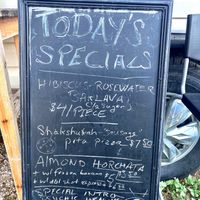 TODAY'S
SPECIALS
HIBISCUS-ROSEWATER
BAKLAVA!
$4/PIECE
Shakshukah-"Sausage"
pita pizza $7.50
ALMOND HORCHATA
+ w/ frozen banana
+ w/ dbl shot espresso
SPECIAL INTRO